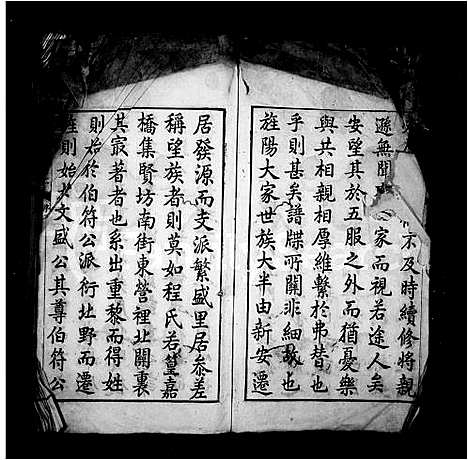 不及時續修將親
遜無聞 家而視若途人矣
安望其於五服之外而猶憂樂
與共相親相厚維繫於弗替也
乎則甚矣譜牒所關非細故也
旌陽大家世族大半由新安遷
居發源而支派繁盛里居參差
稱望族者則莫如程氏若篁嘉
橋集賢坊南街東營裡北關裏
其㝡著者也系出重黎而得姓
則始於伯符公派衍址野而遷
旌則始於文盛公其尊伯符公